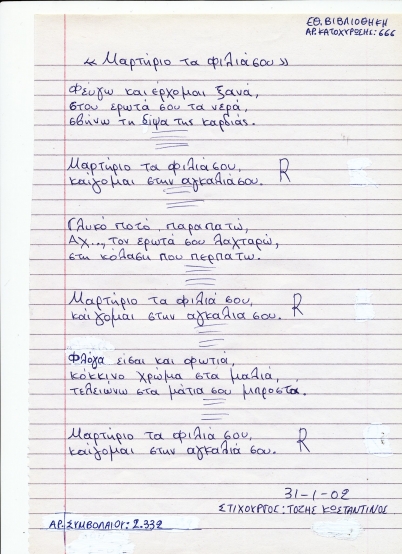 ΕΘ. ΒΙΒΛΙΟΘΗΚΗ
ΑΡ. ΚΑΤΟΧΥΡΩΣΗΣ: 666
«Μαρτήριο τα φιλιά σου»
Φεύγω και έρχομαι ξανά,
στου ερωτά σου τα νερά,
σβήνω τη δίψα της καρδιάς.
Μαρτήριο τα φιλιά σου, R
καίγομαι στην αγκαλιά σου.
Γλυκό ποτό, παραπατώ,
Αχ..., τον ερωτά σου λαχταρώ,
στη κόλαση που περπατω.
Μαρτήριο τα φιλιά σου, R
καίγομαι στην αγκαλιά σου.
Φλόγα είσαι και φωτιά,
κόκκινο χρώμα στα μαλιά,
τελειώνω στα μάτια σου μπροστα.
Μαρτήριο τα φιλιά σου, R
καίγομαι στην αγκαλιά σου.
31-1-02
ΣΤΙΧΟΥΡΓΟΣ: ΤΟΖΗΣ ΚΩΣΤΑΝΤΙΝΟΣ
ΑΡ. ΣΥΜΒΟΛΑΙΟΥ: 2.332